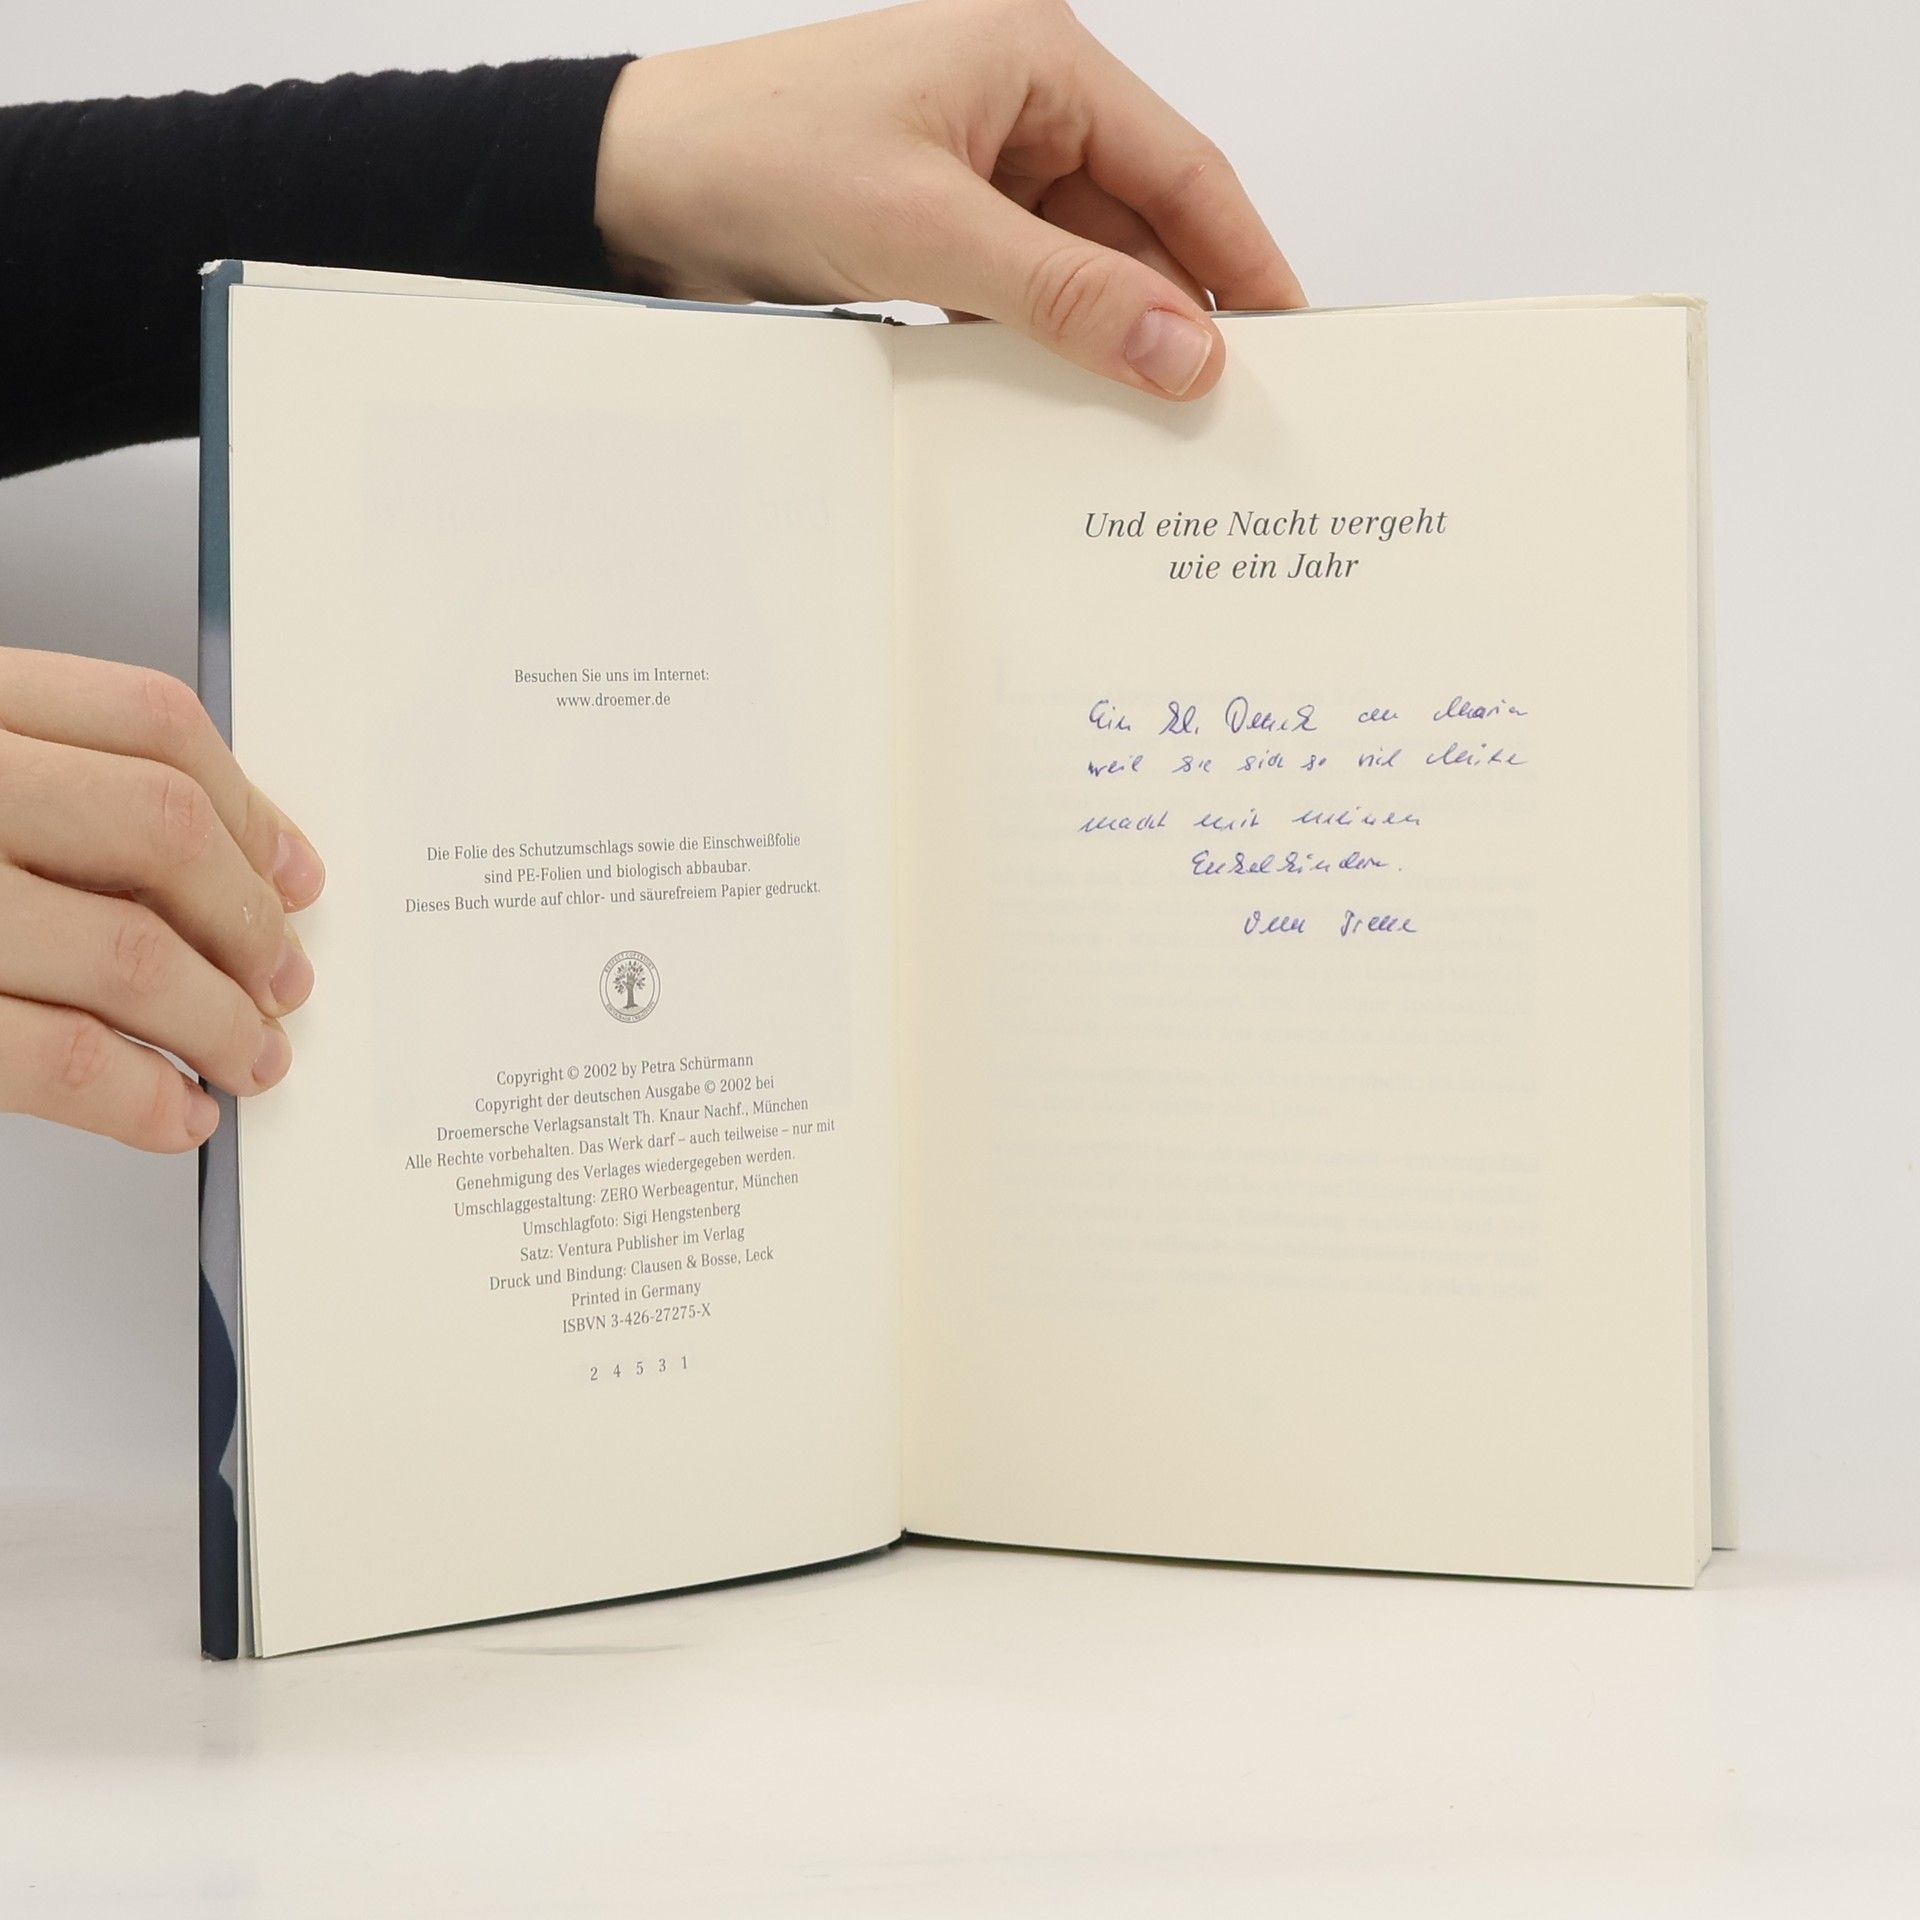 Besuchen Sie uns im Internet:
www.droemer.de
Die Folie des Schutzumschlags sowie die Einschweißfolie
sind PE-Folien und biologisch abbaubar.
Dieses Buch wurde auf chlor- und säurefreiem Papier gedruckt.
Copyright © 2002 by Petra Schürmann
Copyright der deutschen Ausgabe © 2002 bei
Droemersche Verlagsanstalt Th. Knaur Nachf., München
Alle Rechte vorbehalten. Das Werk darf – auch teilweise – nur mit
Genehmigung des Verlages wiedergegeben werden.
Umschlaggestaltung: ZERO Werbeagentur, München
Umschlagfoto: Sigi Hengstenberg
Satz: Ventura Publisher im Verlag
Druck und Bindung: Clausen & Bosse, Leck
Printed in Germany
ISBVN 3-426-27275-X
2 4 5 3 1
Und eine Nacht vergeht
wie ein Jahr
Ein kl. Dank an Maria
weil sie sich so viel Mühe
macht mit meinen
Enkelkindern.
Oma Irene